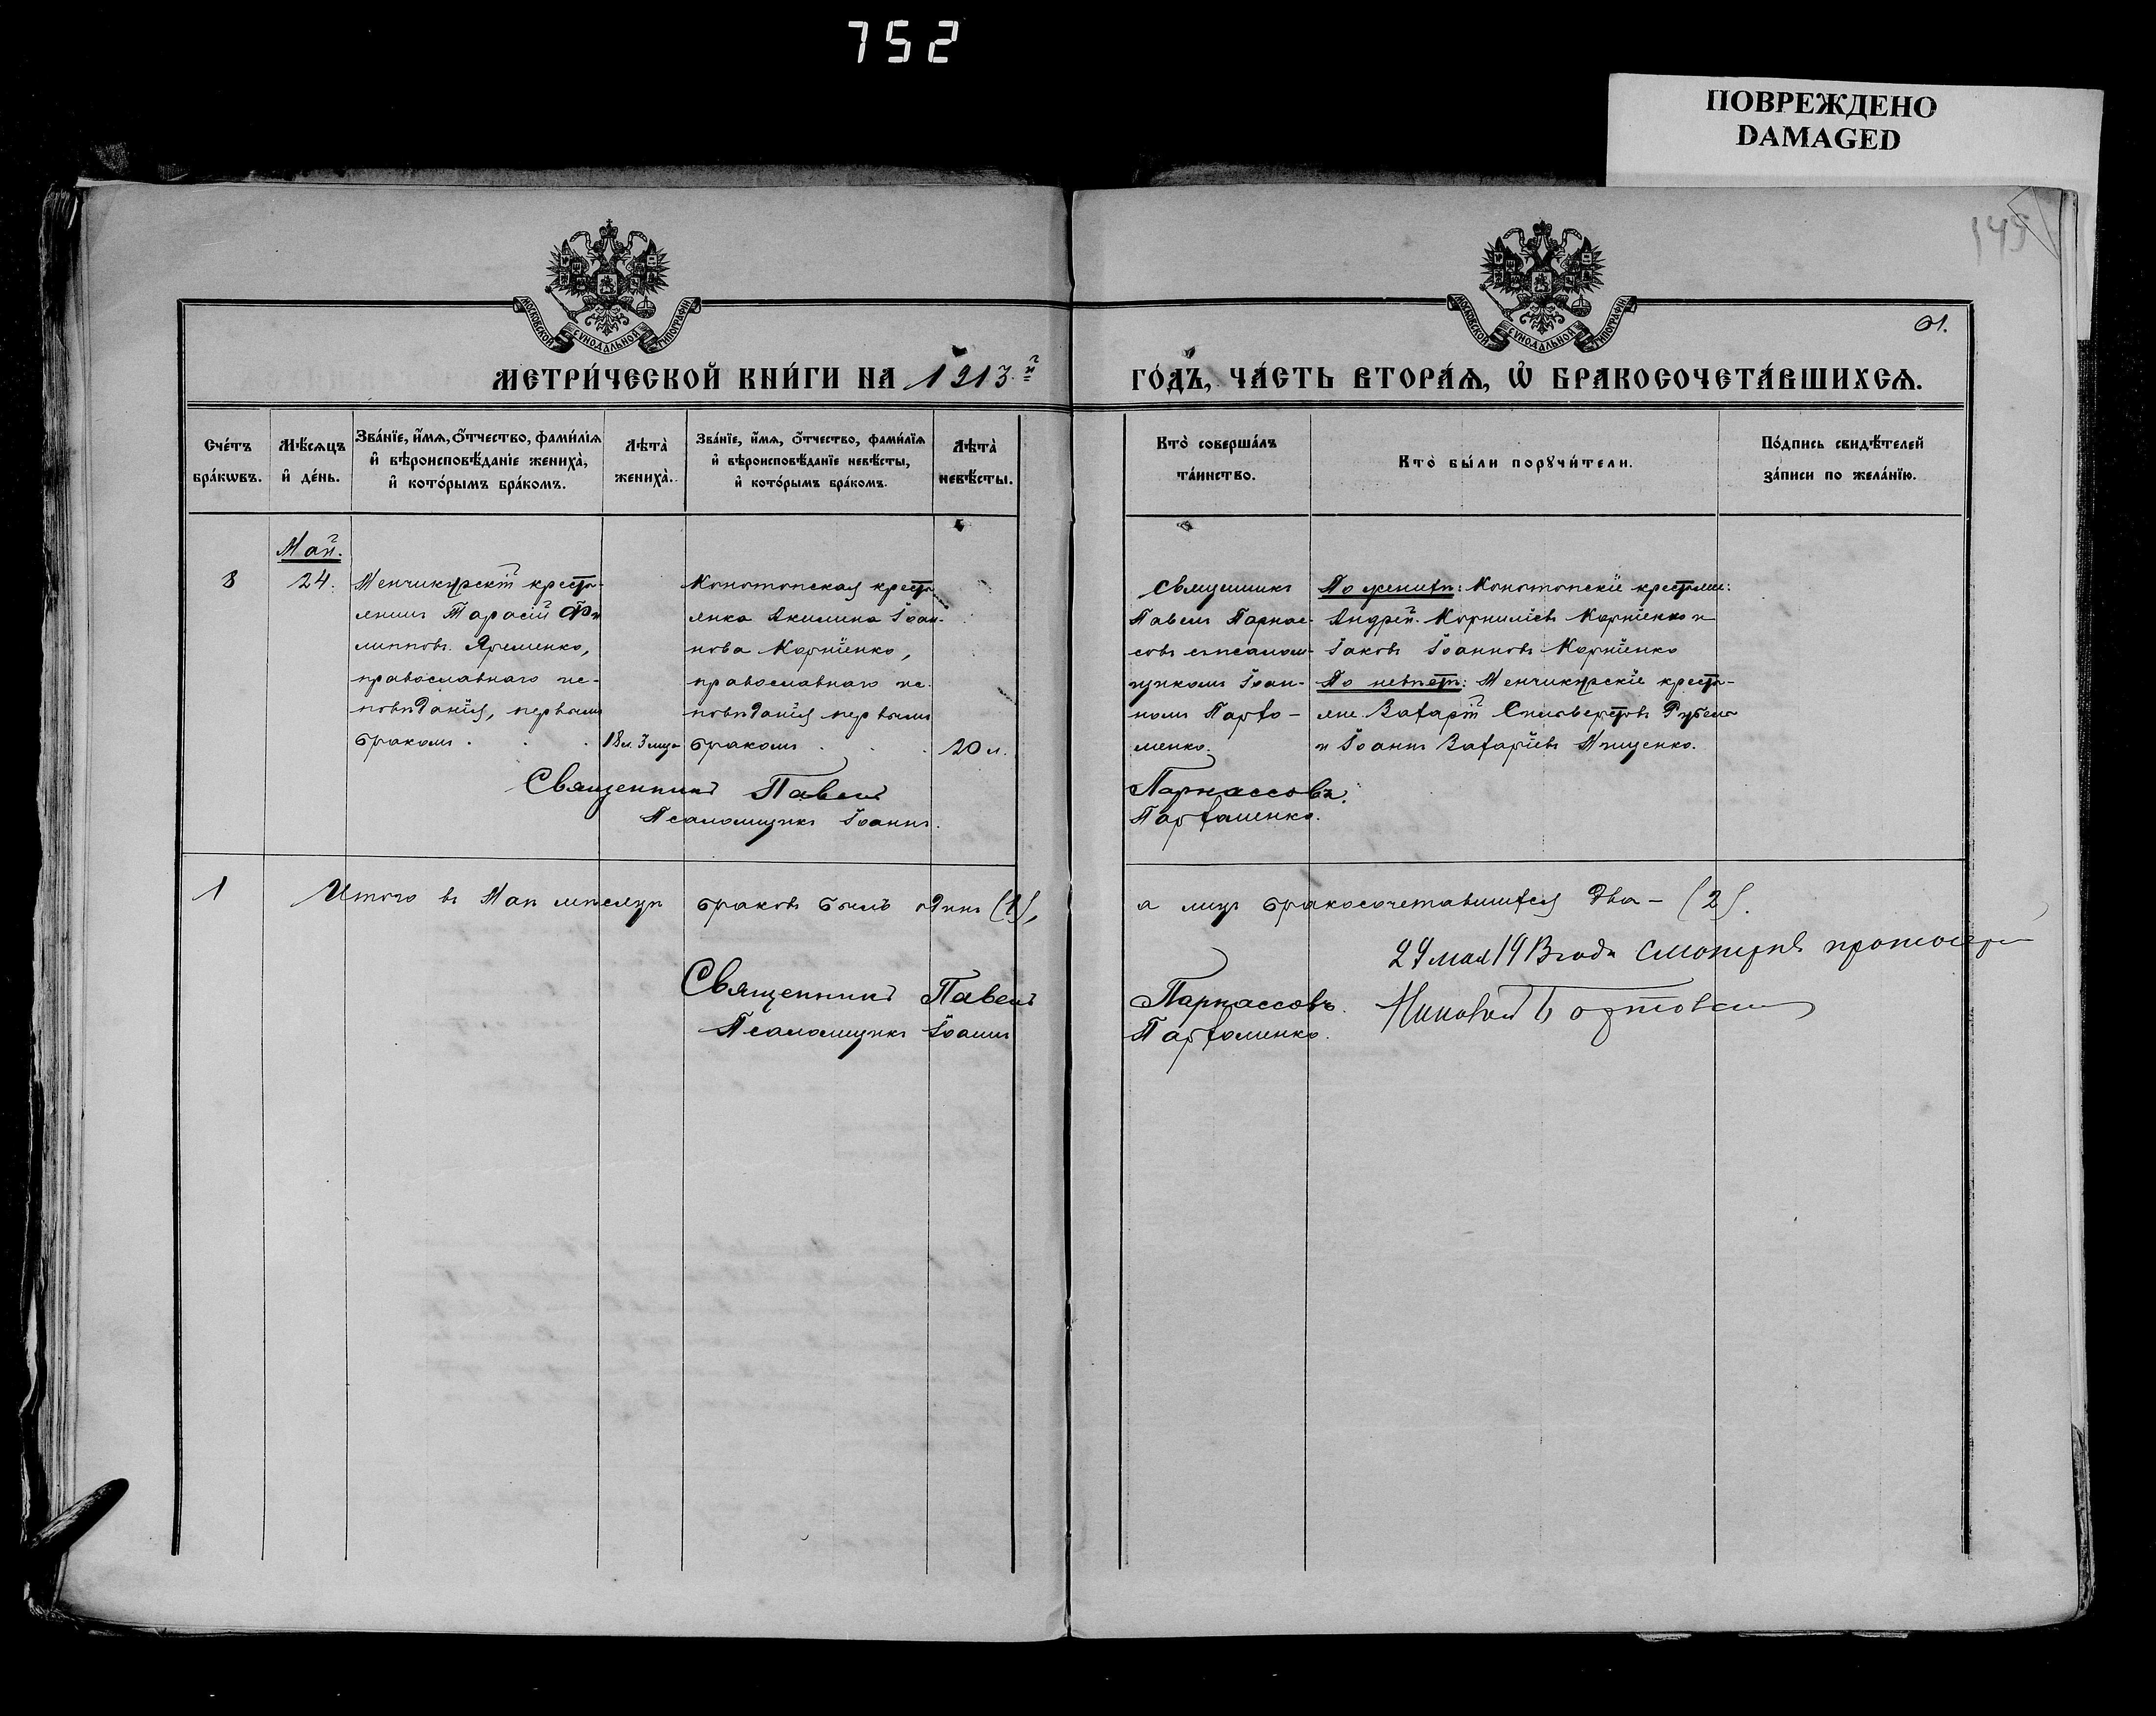 752
ПОВРЕЖДЕНО
DAMAGED
МОСКОВСКОЙ СѴНОДАЛЬНОЙ ТИПОГРАФІИ
МОСКОВСКОЙ СѴНОДАЛЬНОЙ ТИПОГРАФІИ
61.
МЕТРИ́ЧЕСКОЙ КНИ́ГИ НА 1913.й
ГО́ДЪ, ЧА́СТЬ ВТОРА́Ѧ, Ѡ҆ БРАКОСОЧЕТА́ВШИХСѦ.
Сче́тъ
бра́кѡвъ.
Мѣ́сѧцъ
и҆ де́нь.
Зва́нїе, и҆́мѧ, ѻ҆́тчество, фами́лїѧ
и҆ вѣроисповѣ́данїе жениха̀,
и҆ кото́рымъ бра́комъ.
Лѣта̀
жениха̀.
Зва́нїе, и҆́мѧ, ѻ҆́тчество, фами́лїѧ
и҆ вѣроисповѣ́данїе невѣ́сты,
и҆ кото́рымъ бра́комъ.
Лѣта̀
невѣ́сты.
Кто̀ соверша́лъ
та́инство.
Кто̀ бы́ли порꙋчи́тели.
По́дпись свидѣ́телей
за́писи по жела́нїю.
Май.
8
24.
Менчикурскій кресть-
янинъ Тарасій Фи
липповъ Яременко,
православнаго ис-
повѣданія, первымъ
бракомъ
18 л. 3 мца
Конотопская кресть
янка Акилина Іоан-
нова Корніенко,
православнаго ис-
повѣданія первымъ
бракомъ
20 л.
Священникъ
Павелъ Парнас-
совъ съ псалом-
щикомъ Іоан-
номъ Парфо-
менко.
По женихѣ: Конотопскіе крестьяне:
Андрей Корниліевъ Корніенко и
Іаковъ Іоанновъ Корніенко
По невѣстѣ: Менчикурскіе кресть-
яне Захарій Сильверстовъ
и Іоаннъ Захаріевъ Мищенко.
Священникъ Павелъ Парнассовъ.
Псаломщикъ Іоаннъ Парфоменко.
1
Итого въ Маѣ мѣсяцѣ браковъ былъ одинъ (1),
а лицъ бракосочетавшихся два - (2).
29 мая 1913 года смотрѣлъ протоіерей
Священникъ Павелъ Парнассовъ.
Псаломщикъ Іоаннъ Парфоменко.